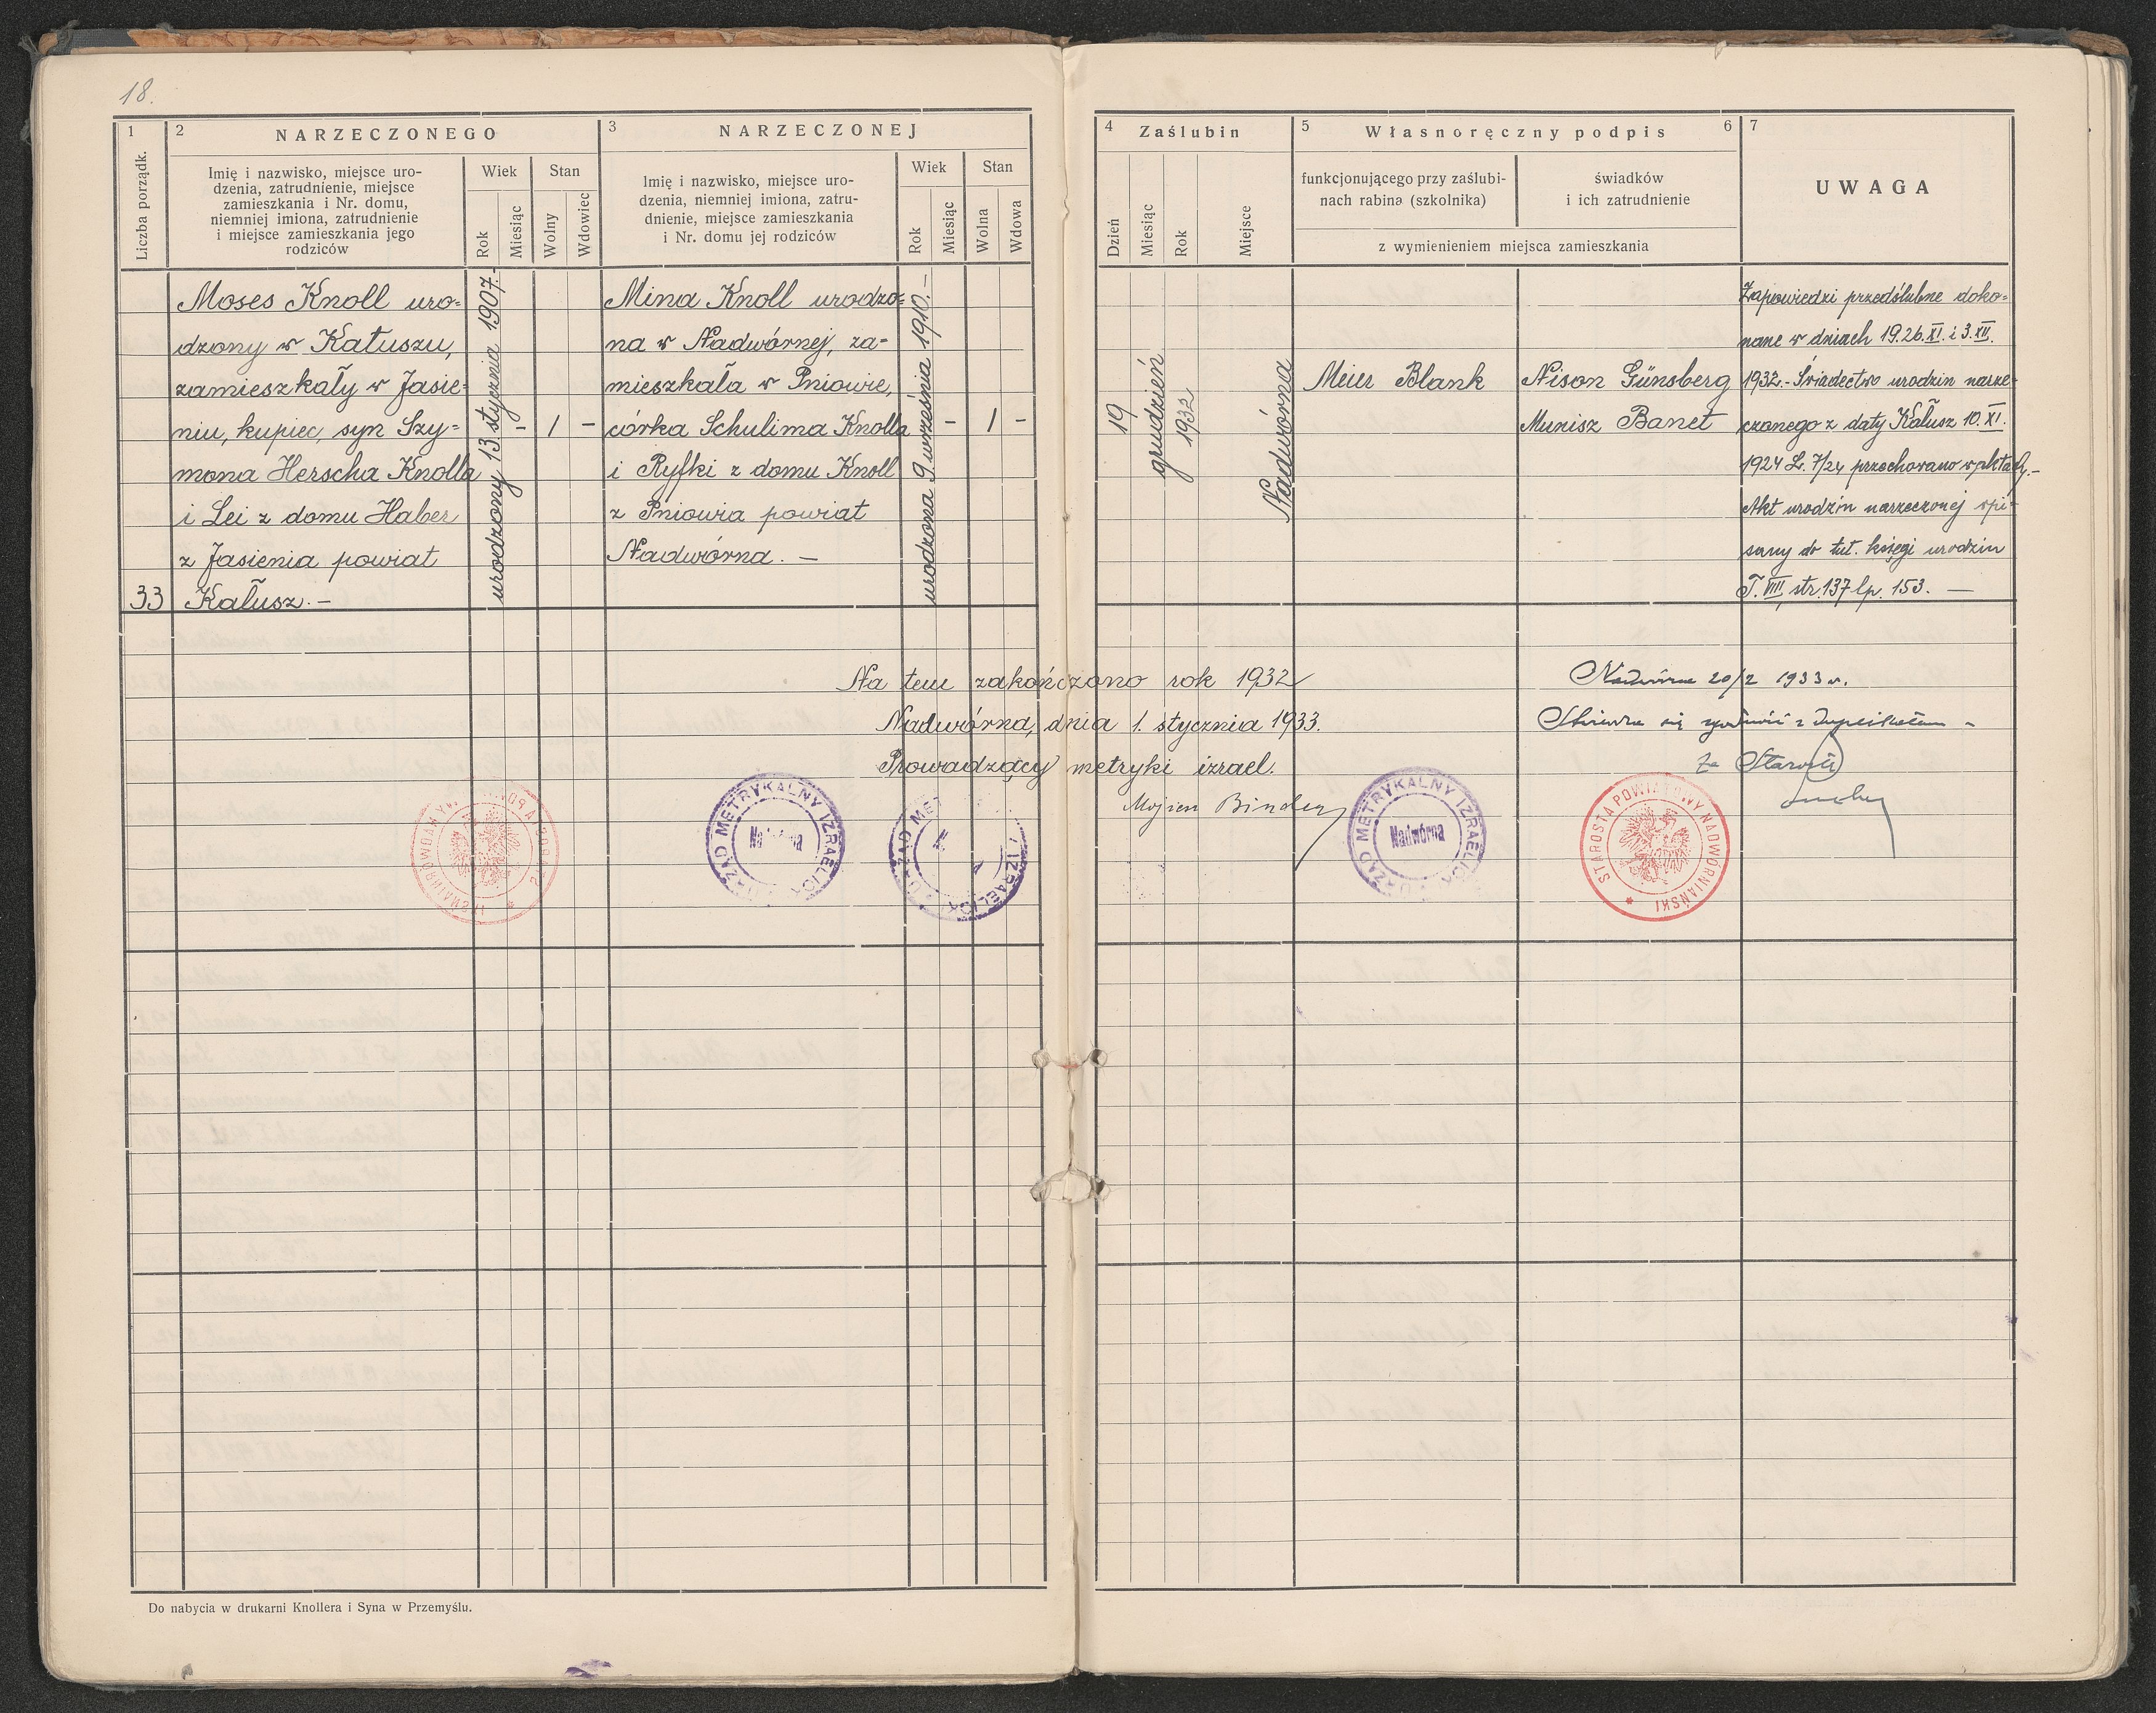 18.
1
2
NARZECZONEGO
3
NARZECZONEJ
Liczba porządk.
Imię i nazwisko, miejsce uro-
dzenia, zatrudnienie, miejsce
zamieszkania i Nr. domu,
niemniej imiona, zatrudnienie
i miejsce zamieszkania jego
rodziców
Wiek
Rok
Miesiąc
Stan
Wolny
Wdowiec
Imię i nazwisko, miejsce uro-
dzenia, niemniej imiona, zatru-
dnienie, miejsce zamieszkania
i Nr. domu jej rodziców
Wiek
Rok
Miesiąc
Stan
Wolna
Wdowa
33
Moses Knoll uro=
dzony w Kałuszu,
zamieszkały w Jasie=
niu, kupiec, syn Szy=
mona Herscha Knolla
i Lei z domu Haber
z Jasienia powiat
Kałusz.-
urodzony 13 stycznia 1907.-
- 1 -
Mina Knoll urodzo=
na w Nadwórnej, za-
mieszkała w Pniowie,
córka Schulima Knolla
i Ryfki z domu Knoll
z Pniowia powiat
Nadwórna. —
urodzona 9 września 1910.-
- 1 -
4
Zaślubin
5
Własnoręczny podpis
6
7
Dzień
Miesiąc
Rok
Miejsce
funkcjonującego przy zaślubi-
nach rabina (szkolnika)
świadków
i ich zatrudnienie
z wymienieniem miejsca zamieszkania
UWAGA
19
grudzień
1932
Nadwórna
Meier Blank
Nison Günsberg
Munisz Banet
Zapowiedzi przedślubne doko=
nane w dniach 19.26.XI. i 3.XII.
1932.- Świadectwo urodzin narze-
czonego z daty Kałusz 10.XI.
1924 L. 7/24 przechowano w aktach.-
Akt urodzin narzeczonej wpi-
sany do tut. księgi urodzin
T. VIII, str. 137 lp. 153. —
Na tem zakończono rok 1932
Nadwórna, dnia 1. stycznia 1933.
Prowadzący metryki izrael.
Mojżesz Binder
Nadwórna 20/2 1933 r.
Stwierdza się zgodność z duplikatem -
Za Starostę
URZĄD METRYKALNY IZRAELICK.
Nadwórna
URZĄD METRYKALNY IZRAELICK.
Nadwórna
STAROSTA POWIATOWY NADWÓRNIAŃSKI
Do nabycia w drukarni Knollera i Syna w Przemyślu.